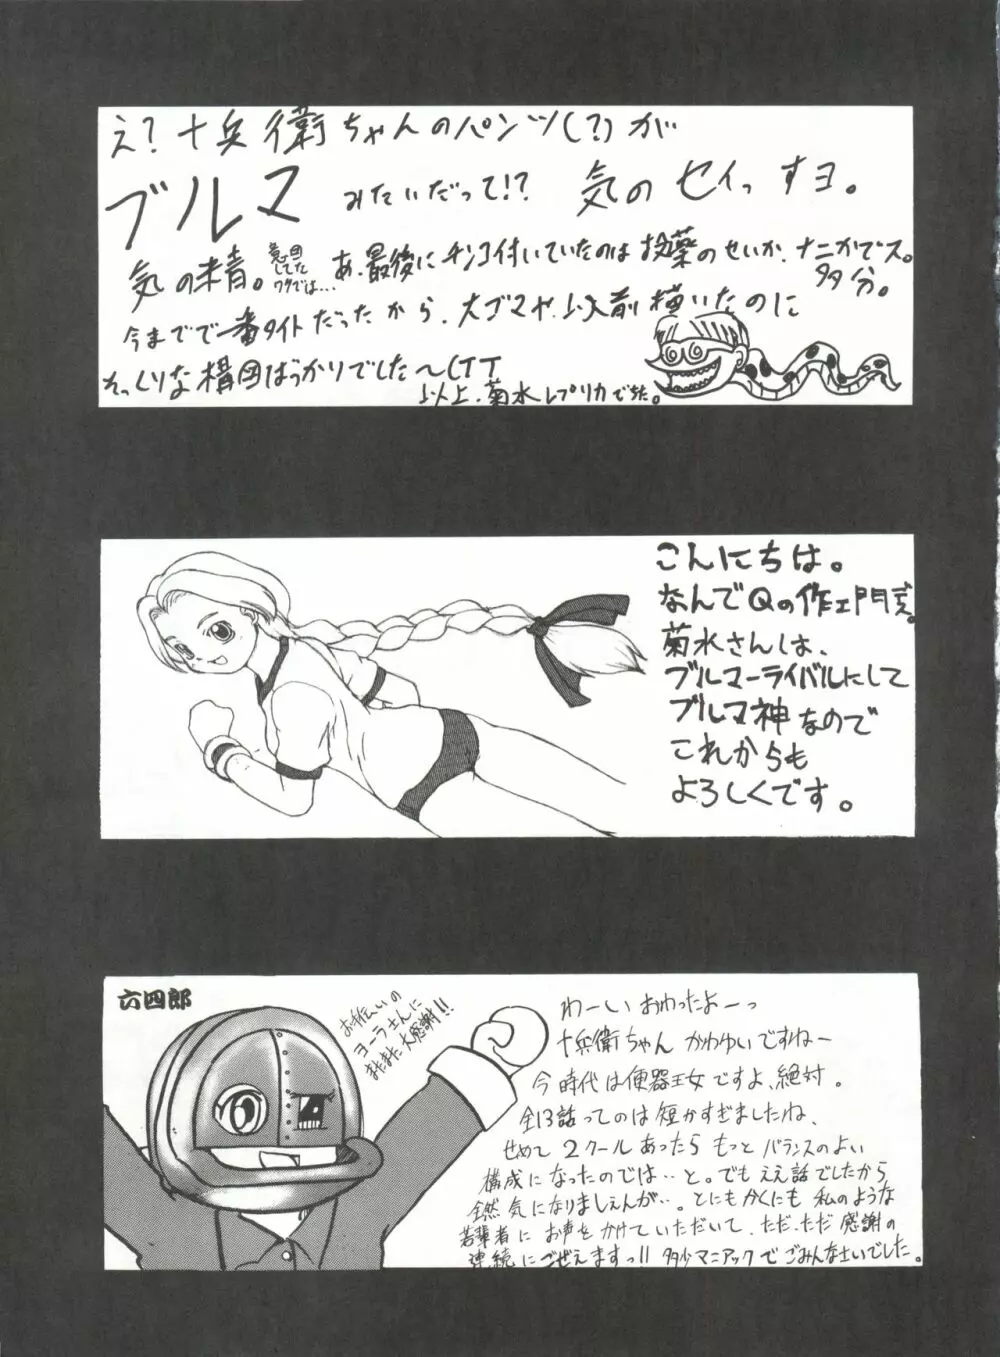 え?十兵衛ちゃんのパンツ(?)が
ブルマ みたいだって!? 気のセイっすヨ。
気の精。意図してたワケでは…あ、最後にチンコ付いていたのは投薬のせいか、ナニかでス。多分。
今までで一番タイトだったから、大ゴマや、以前描いたのに
そっくりな構図ばっかりでした〜(TT
以上、菊水レプリカでした。
こんにちは。
なんでQの作エ門だ。
菊水さんは、
ブルマーライバルにして
ブルマ神なので
これからも
よろしくです。
六四郎
お手伝いの
ヨーラさんに
またまた大感謝!!
わーい おわったよーっ
十兵衛ちゃん かわゆいですねー
今時代は便器王女ですよ、絶対。
全13話ってのは短かすぎましたね、
せめて2クールあったらもっとバランスのよい
構成になったのでは‥と。でもええ話でしたから
全然気になりましぇんが‥。とにもかくにも私のような
若輩者にお声をかけていただいて、ただ・ただ感謝の
連続にごぜえますっ!! 多少マニアックでごみんなせいでした。